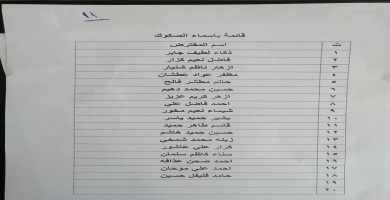 قائمة باسماء الصكوك
ت اسم المقترض
١ ذكاء لطيف جابر
٢ فاضل نعيم كزار
٣ ازهار ناظم شنيار
٤ مظفر عواد عطشان
٥ حاتم مطشر فالح
٦ حسين محمد دهيم
٧ ازهر كريم عزيز
٨ احمد فاضل علي
٩ شيماء نعيم مهور
١٠ بشير حميد ياسر
١١ قاسم طاهر حميد
١٢ حسين حميد هاشم
١٣ زينه محمد شمخي
١٤ كرار علي عاشور
١٥ سناء كاظم سلمان
١٦ احمد صحن عذافه
١٧ احمد علي موحان
١٨ حامد فليفل حسين
١٩
٢٠